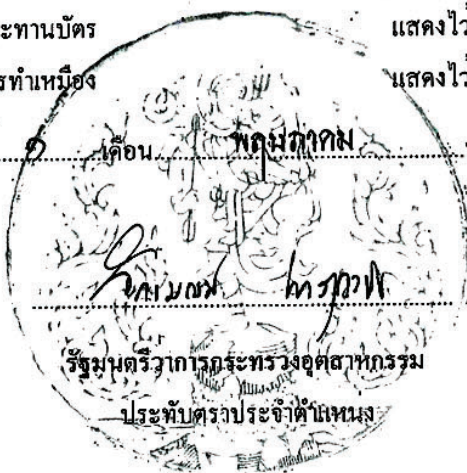 ะทานบัตร แสดงไว้
รทำเหมือง แสดงไว้
๑ เดือน พฤษภาคม
รัฐมนตรีว่าการกระทรวงอุตสาหกรรม
ประทับตราประจำตำแหน่ง